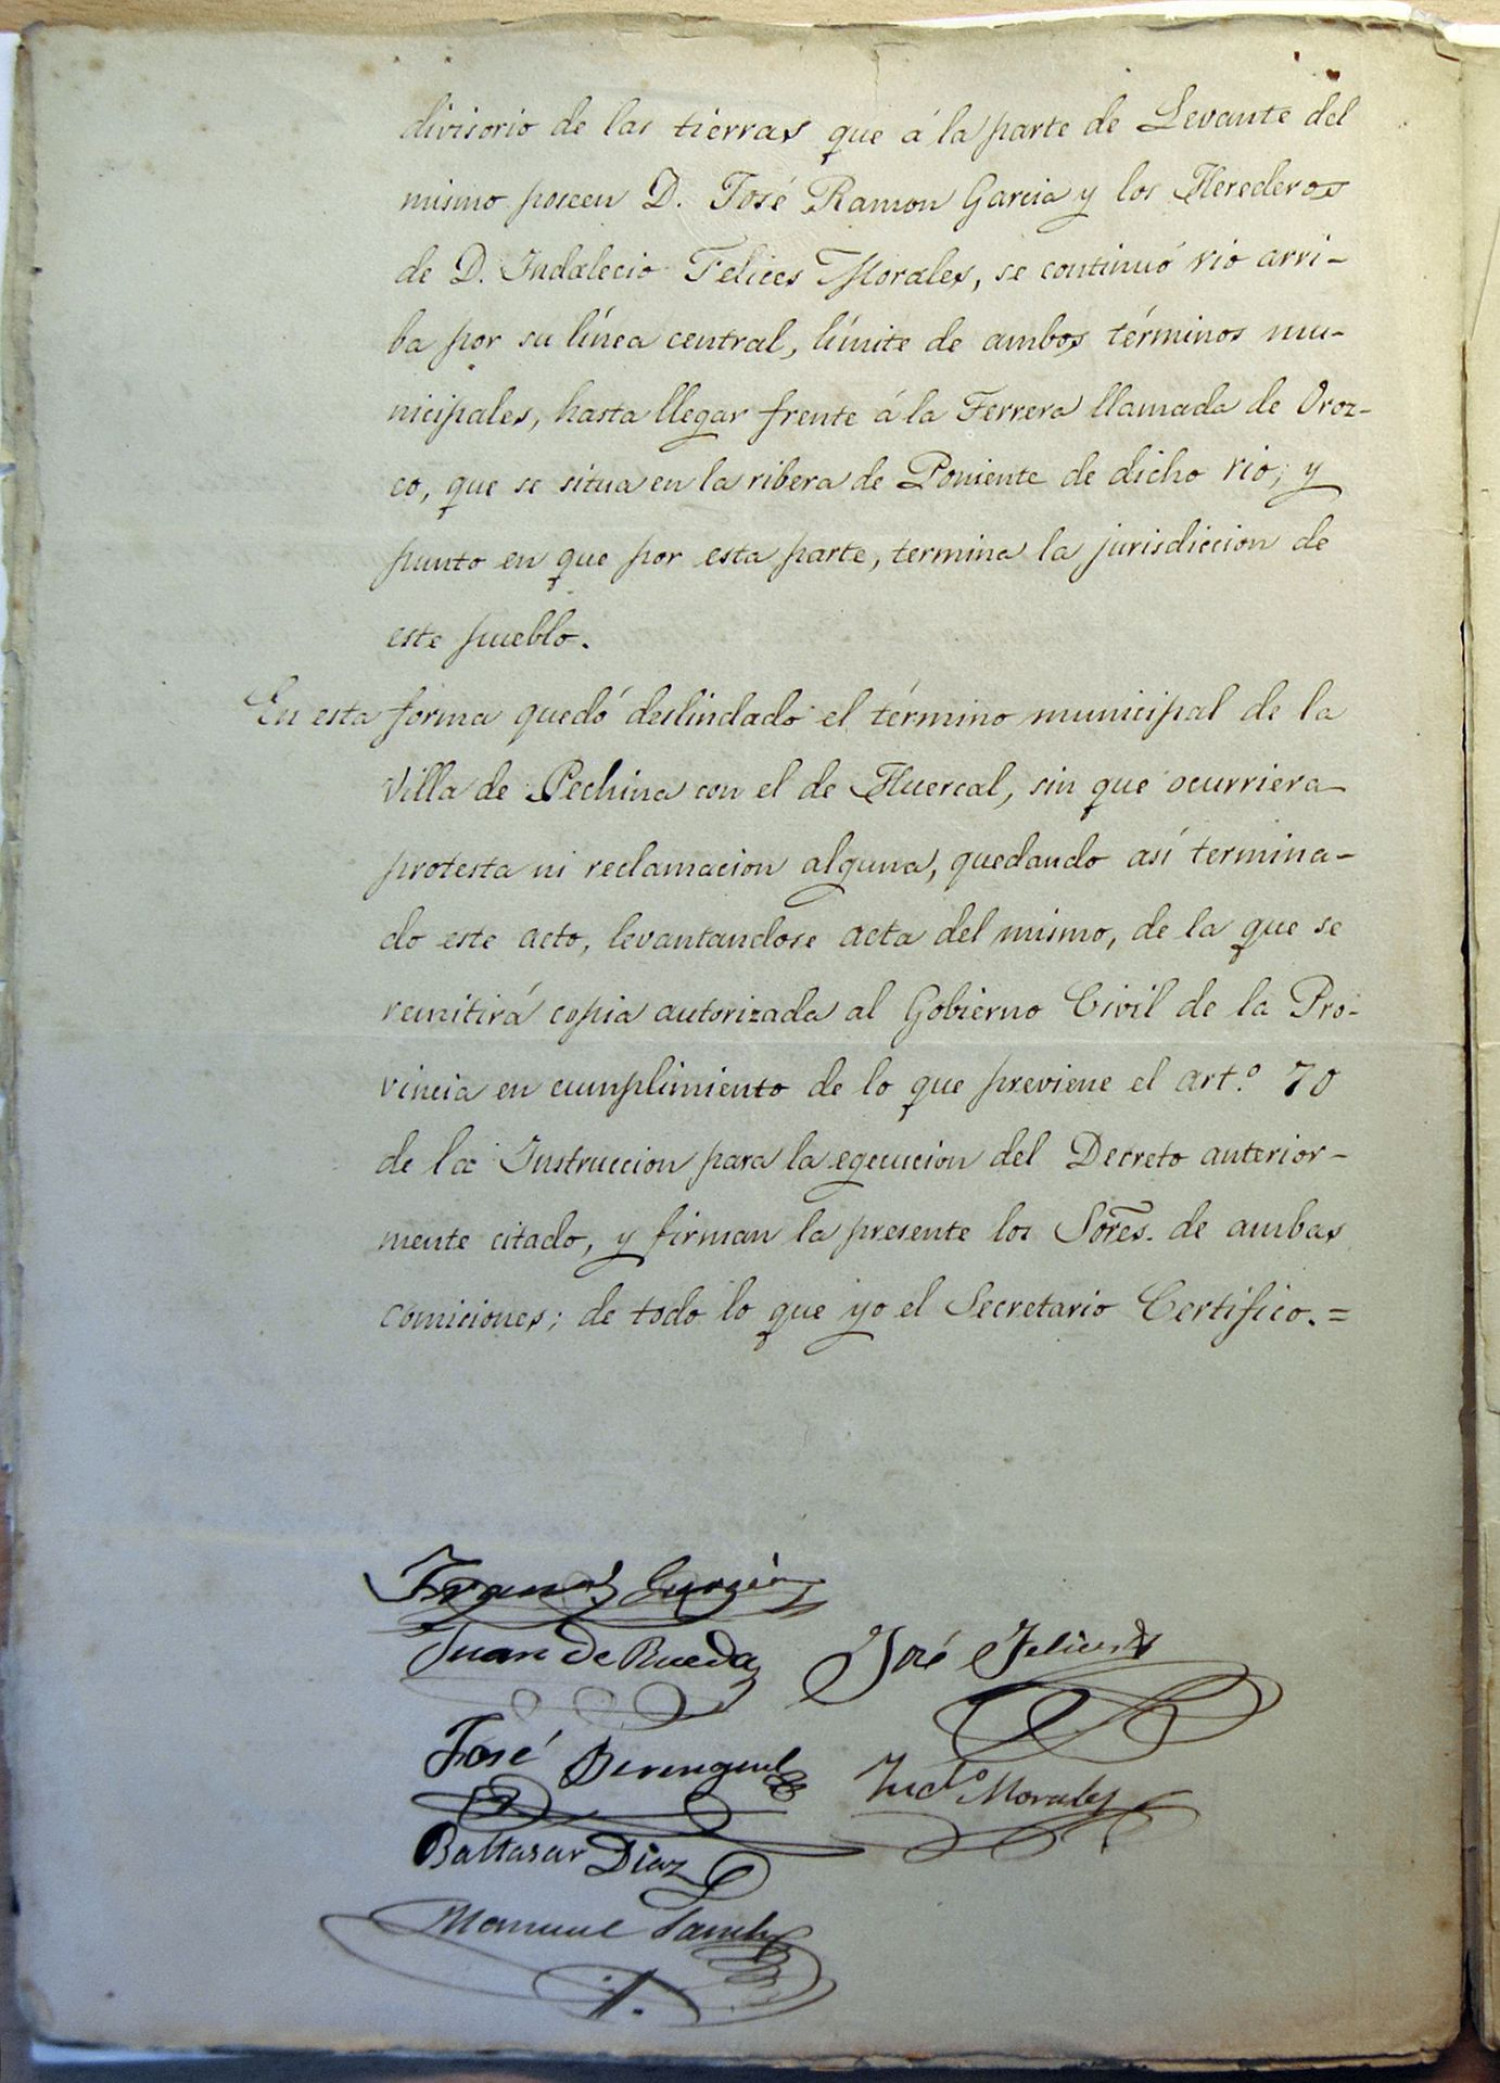 divisorio de las tierras que á la parte de Levante del
mismo poseen D. José Ramon Garcia y los Herederos
de D. Indalecio Felices Morales, se continuó rio arri-
ba por su línea central, límite de ambos términos mu-
nicipales, hasta llegar frente á la Ferrera llamada de Oroz-
co, que se situa en la ribera de Poniente de dicho rio; y
punto en que por esta parte, termina la jurisdiccion de
este pueblo.
En esta forma quedó deslindado el término municipal de la
Villa de Pechina con el de Huercal, sin que ocurriera
protesta ni reclamacion alguna, quedando así termina-
do este acto, levantandose acta del mismo, de la que se
remitirá copia autorizada al Gobierno Civil de la Pro-
vincia en cumplimiento de lo que previene el art.º 70
de la Instruccion para la egecucion del Decreto anterior-
mente citado, y firman la presente los Sores. de ambas
comiciones; de todo lo que yo el Secretario Certifico.=
Garcia
Juan de Rueda José Felices
José Berenguel Morales
Baltasar Diaz
Manuel